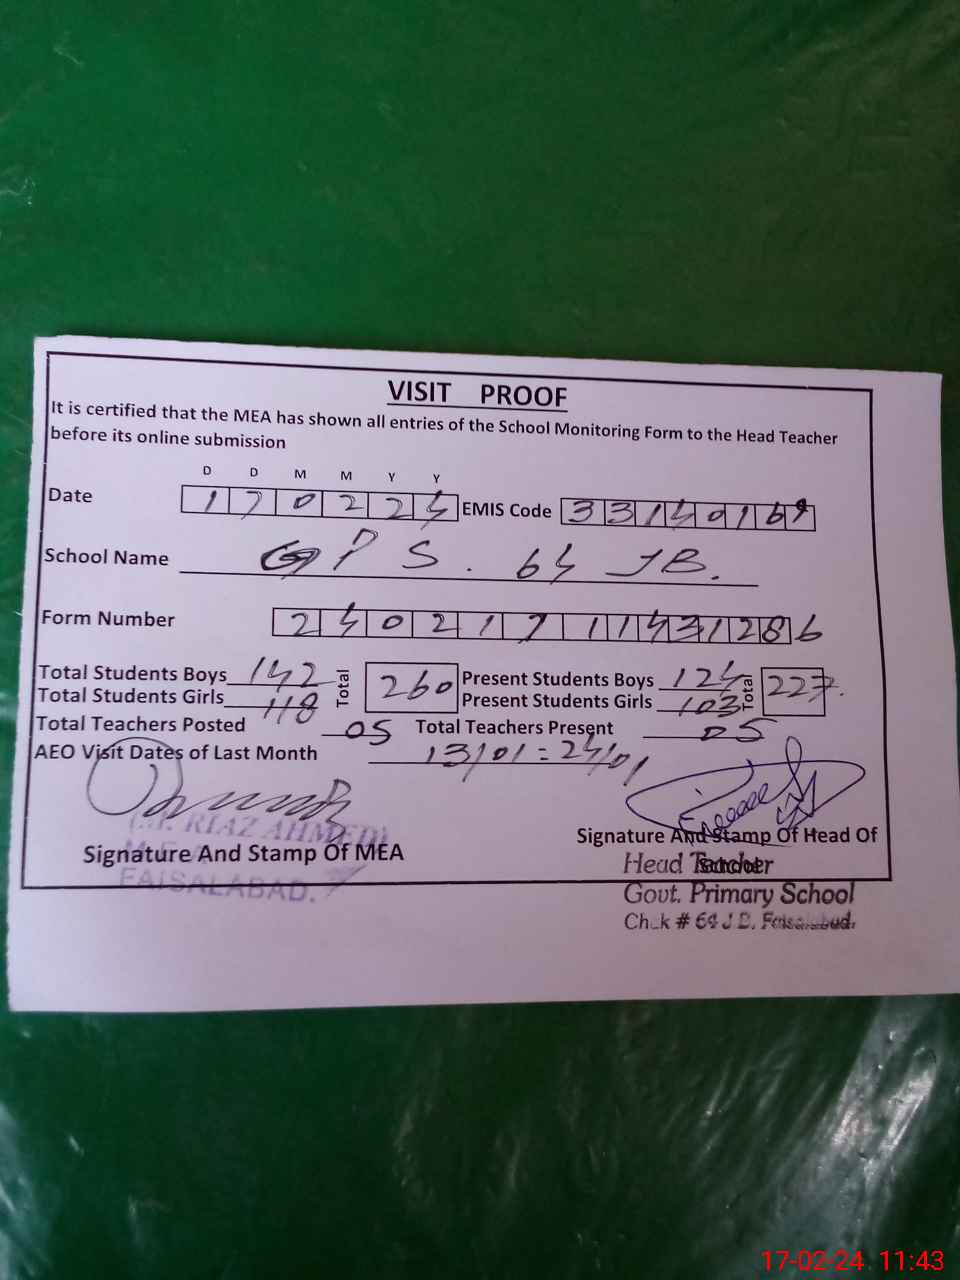 VISIT PROOF
It is certified that the MEA has shown all entries of the School Monitoring Form to the Head Teacher
before its online submission
D D M M Y Y
Date 170224 EMIS Code 33140169
School Name GPS. 64 JB.
Form Number 24021711431286
Total Students Boys 142 Total 260 Present Students Boys 124 Total 227
Total Students Girls 118 Present Students Girls 103
Total Teachers Posted 05 Total Teachers Present 05
AEO Visit Dates of Last Month 13/01 = 24/01
RIAZ AHMED)
Signature And Stamp Of MEA
FAISALABAD.
Signature And Stamp Of Head Of
School
Head Teacher
Govt. Primary School
Chak # 64 J.B. Faisalabad.
17-02-24 11:43